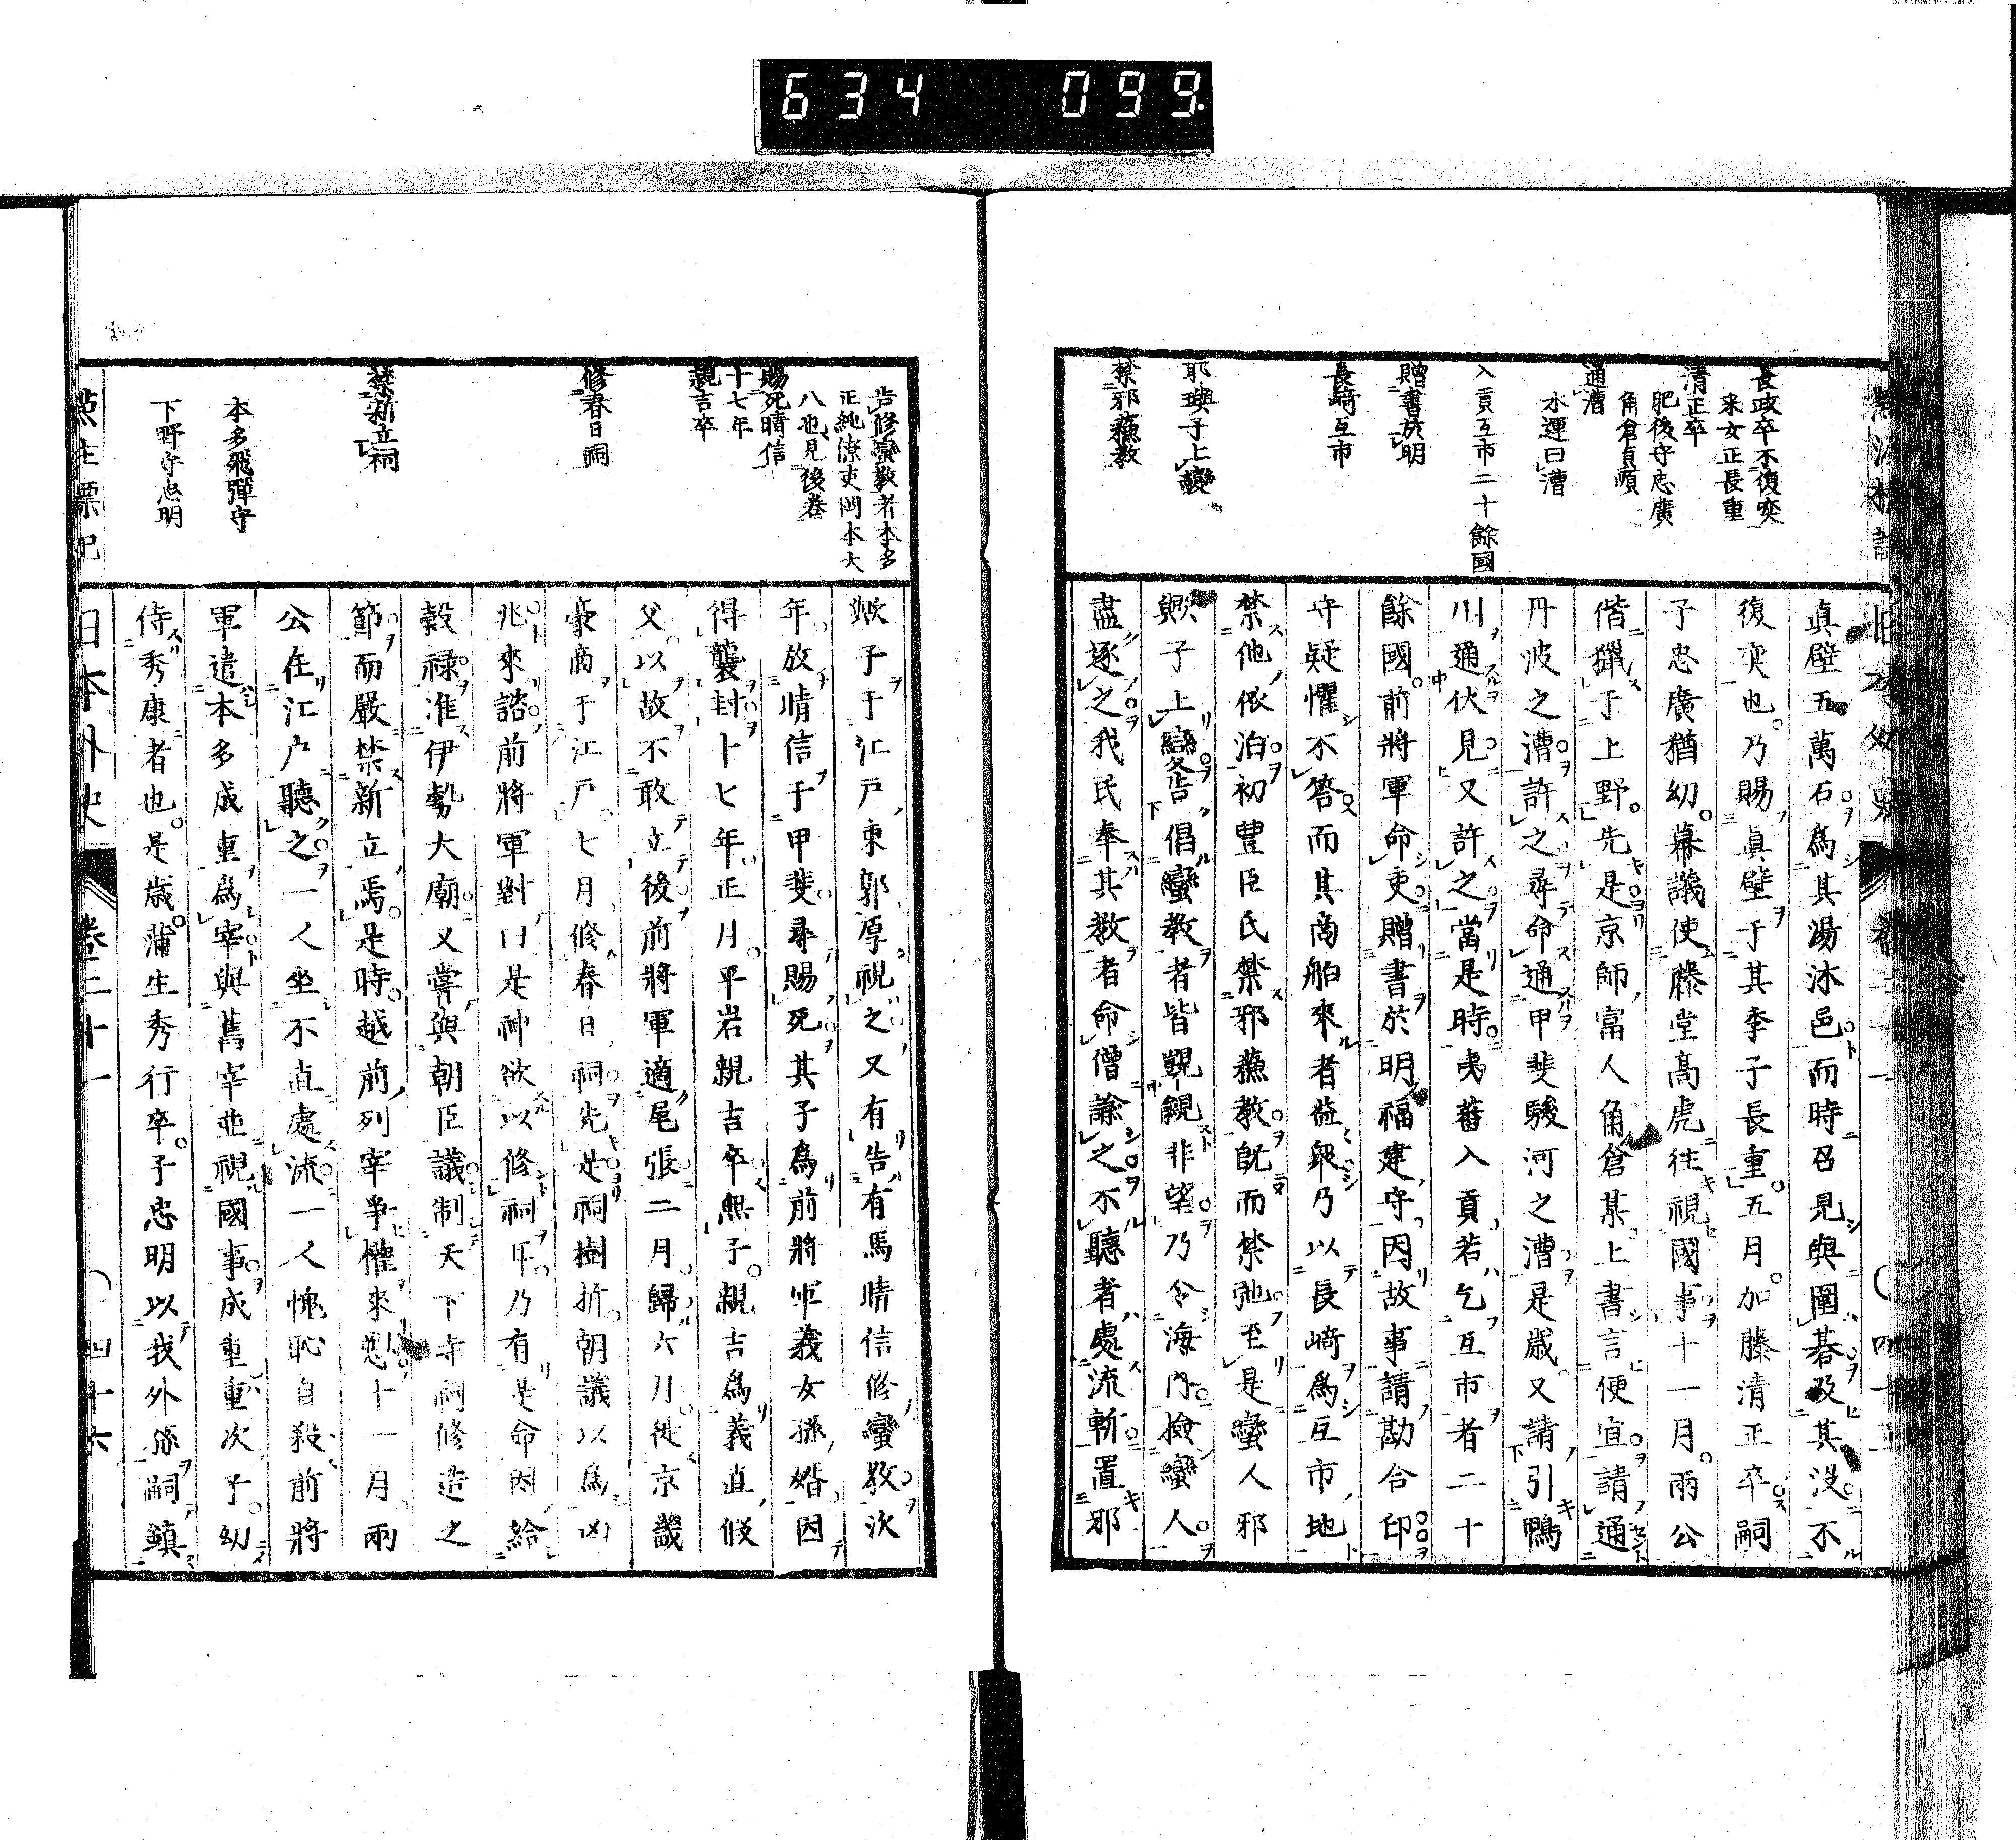 634 099
長政卒不復奕
采女正長重
清正卒
肥後守忠廣
角倉貞順
通漕
水運曰漕
入貢互市二十餘國
贈書於明
長崎互市
耶揆子上變
禁邪蘓教
眞壁五萬石爲其湯沐邑而時召見與圍碁及其沒不
復奕也乃賜眞壁于其季子長重五月加藤清正卒嗣
子忠廣猶幼幕議使藤堂高虎往視國事十一月兩公
偕獵于上野先是京師富人角倉某上書言便宜請通
丹波之漕許之尋命通甲斐駿河之漕是歳又請引鴨
川通伏見又許之當是時夷蕃入貢若乞互市者二十
餘國前將軍命吏贈書於明福建守因故事請勘合印
守疑懼不答而其商舶來者益衆乃以長崎爲互市地
禁他依泊初豊臣氏禁邪蘓教既而禁弛至是蠻人邪
歟子上變告倡蠻教者皆覬覦非望乃令海内撿蠻人
盡逐之我民奉其教者命僧諭之不聽者處流斬置邪
告修蠻教者本多
正純僚吏岡本大
八也見後卷
賜死晴信
十七年
親吉卒
修春日祠
禁新立祠
本多飛彈守
下野守忠明
歟子于江戸東郭厚視之又有告有馬晴信修蠻教次
年放晴信于甲斐尋賜死其子爲前將軍義女孫婚因
得襲封十七年正月平岩親吉卒無子親吉爲義直假
父以故不敢立後前將軍適尾張二月歸六月徙京畿
豪商于江戸七月修春日祠先是祠樹折朝議以爲凶
兆來諮前將軍對曰是神欲以修祠耳乃有是命因給
穀祿准伊勢大廟又嘗與朝臣議制天下寺祠修造之
節而嚴禁新立焉是時越前列宰爭權來愬十一月兩
公在江戸聽之一人坐不直處流一人愧恥自殺前將
軍遣本多成重爲宰與舊宰並視國事成重重次子幼
侍秀康者也是歳蒲生秀行卒子忠明以我外孫嗣鎮
点註標記
日本外史
卷二十一
四十六